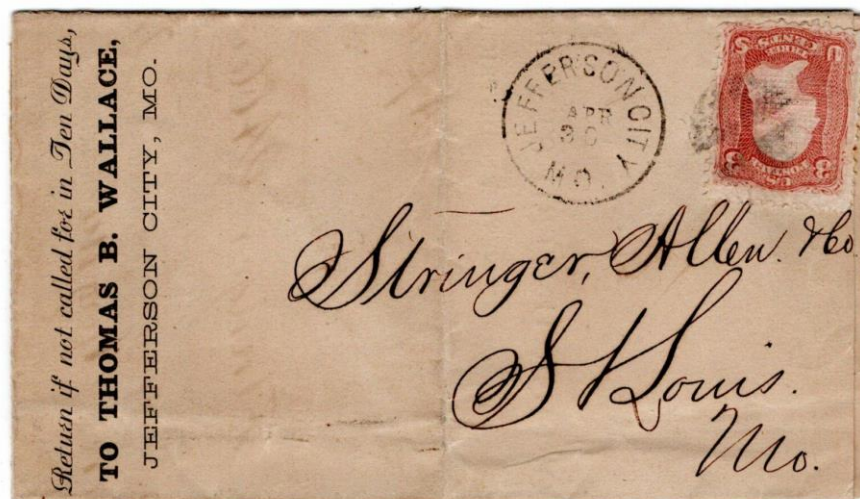 Return if not called for in Ten Days,
TO THOMAS B. WALLACE,
JEFFERSON CITY, MO.
JEFFERSON CITY
APR
30
MO.
U S
THREE CENTS
U.S. POSTAGE
3 3
Stringer, Allen. & Co
St Louis.
Mo.